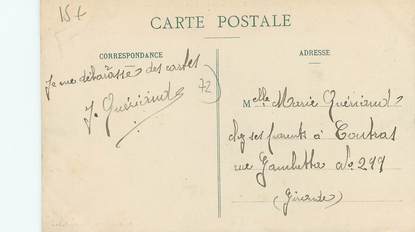 15+
CARTE POSTALE
CORRESPONDANCE
ADRESSE
Je me débarasse des cartes
J. Guériaud
72
Melle Marie Guériaud
chez ses parents à Coutras
rue Gambetta No 299
(Gironde)